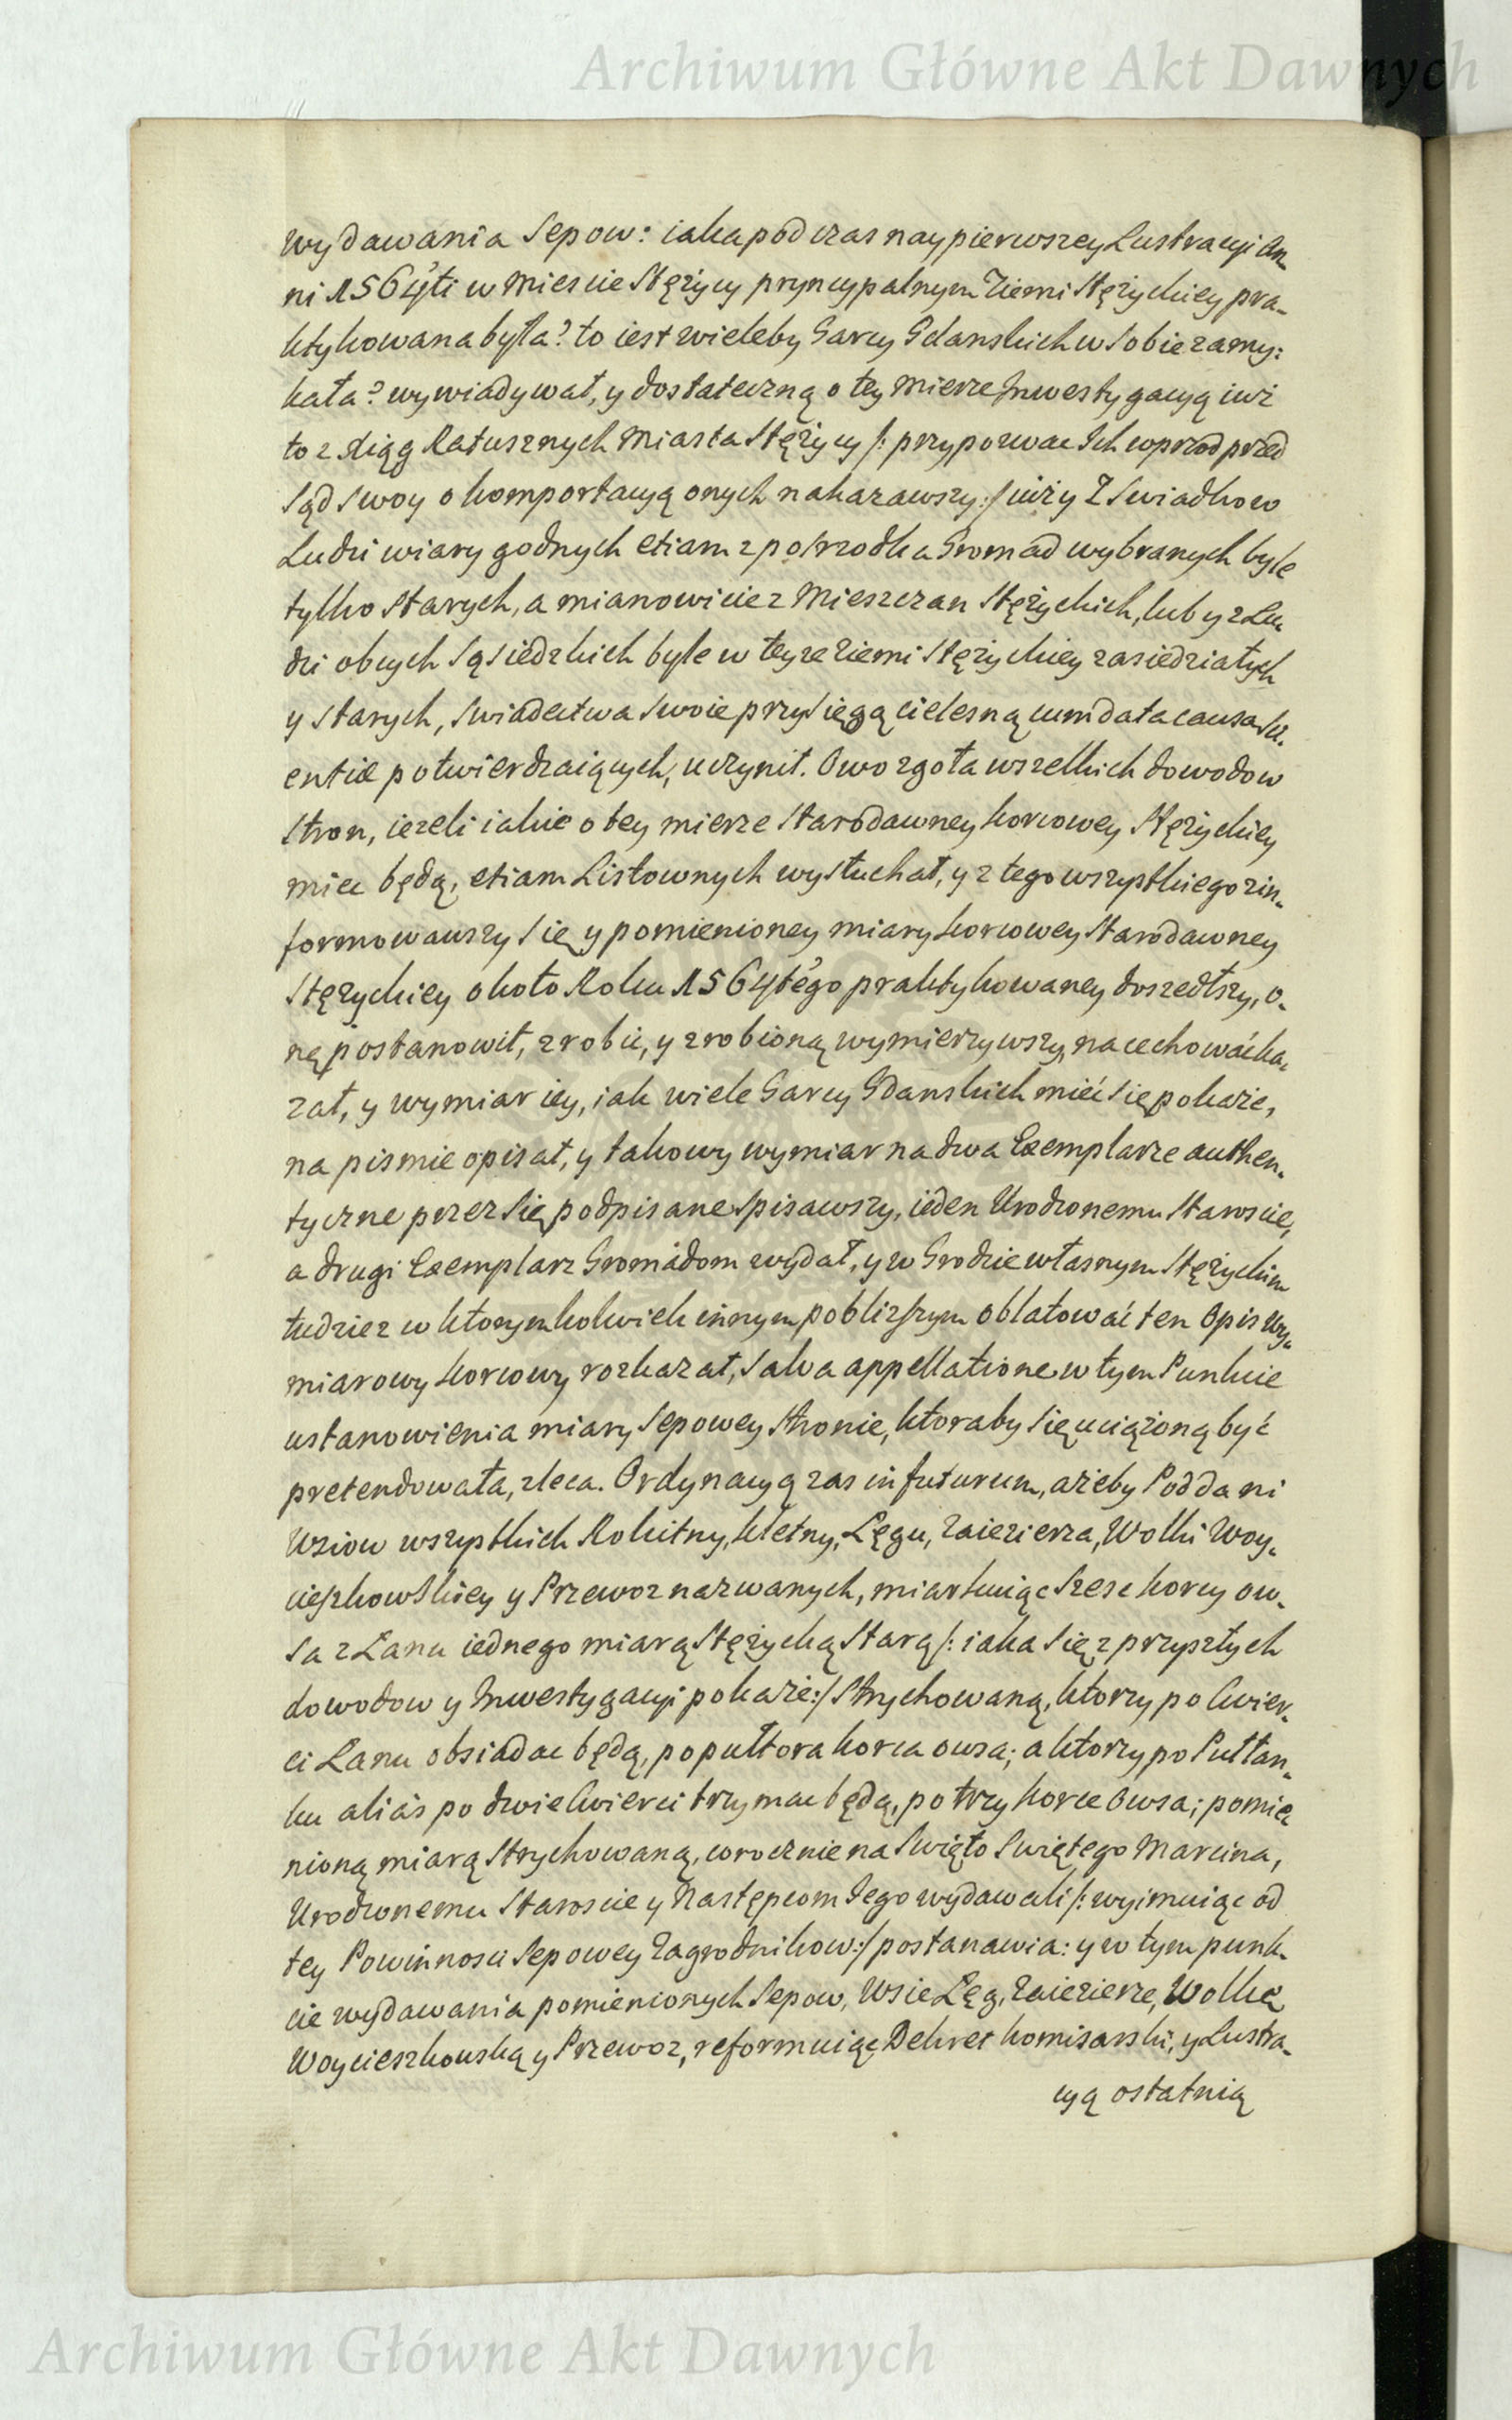 Archiwum Główne Akt Dawnych
wydawania Sepow: iaka podczas naypierwszey Lustracyi An-
ni 1564ti w Miescie Stężycy pryncypalnym Ziemi Stężyckiey pra-
ktykowana była? to iest wieleby Garcy Gdanskich w sobie zamy:
kała? wywiadywał, y dostateczną o tey mierze Inwestygacyą iuż
to z Xiąg Ratusznych Miasta Stężycy /: przypozwac Ich wprzod przed
Sąd swoy o komportacyą onych nakazawszy :/ iuż y z Swiadkow
Ludzi wiary godnych etiam z posrzodka Gromad wybranych byle
tylko starych, a mianowicie z Mieszczan Stężyckich, lub y z Lu-
dzi obcych Sąsiedzkich byle w teyze Ziemi Stężyckiey zasiedziałych
y starych, swiadectwa swoie przysięgą cielesną cum data causa sci-
entiæ potwierdzaiących, uczynił. Owo zgoła wszelkich dowodow
stron, iezeli iakie o tey mierze starodawney korcowey Stężyckiey
miec będą, etiam Listownych wysłuchał, y z tego wszystkiego zin-
formowawszy się y pomienioney miary korcowey starodawney
Stężyckiey około Roku 1564tego praktykowaney doszedłszy, o-
ną postanowił, zrobic, y zrobioną wymierzywszy nacechować ka-
zał, y wymiar iey, iak wiele Garcy Gdanskich mieć się pokaże,
na pismie opisał, y takowy wymiar na dwa Exemplarze authen-
tyczne przez się podpisane spisawszy, ieden Urodzonemu Staroscie,
a drugi Exemplarz Gromadom wydał, y w Grodzie własnym Stężyckim
tudziez w ktorymkolwiek innym pobliższym oblatować ten Opis wy-
miarowy korcowy rozkazał, salva appellatione w tym Punkcie
ustanowienia miary Sepowey stronie, ktoraby się uciążoną być
pretendowała, zleca. Ordynacyą zas in futurum, ażeby Poddani
Wsiow wszystkich Rokitny, Kletny, Lęgu, Zaiezierza, Wolki Woy-
cieszkowskiey y Przewoz nazwanych, miarkuiąc szesc korcy ow-
sa z Łanu iednego miarą Stężycką starą /: iaka się z przyszłych
dowodow y Inwestygacyi pokaże :/ strychowaną, ktorzy po cwier-
ci Łanu obsiadac będą, po pułtora korca owsa; a ktorzy po Pułłan-
ku alias po dwie cwierci trzymac będą, po trzy korce Owsa; pomie
nioną miarą strychowaną, corocznie na Swięto Swiętego Marcina,
Urodzonemu Staroscie y Następcom Jego wydawali /: wyimuiąc od
tey Powinnosci Sepowey Zagrodnikow :/ postanawia: y w tym punk-
cie wydawania pomienionych Sepow, Wsie Lęg, Zaiezierze, Wolką
Woycieszkowską y Przewoz, reformuiąc Dekret komisarski, y Lustra-
cyą ostatnią
Archiwum Główne Akt Dawnych